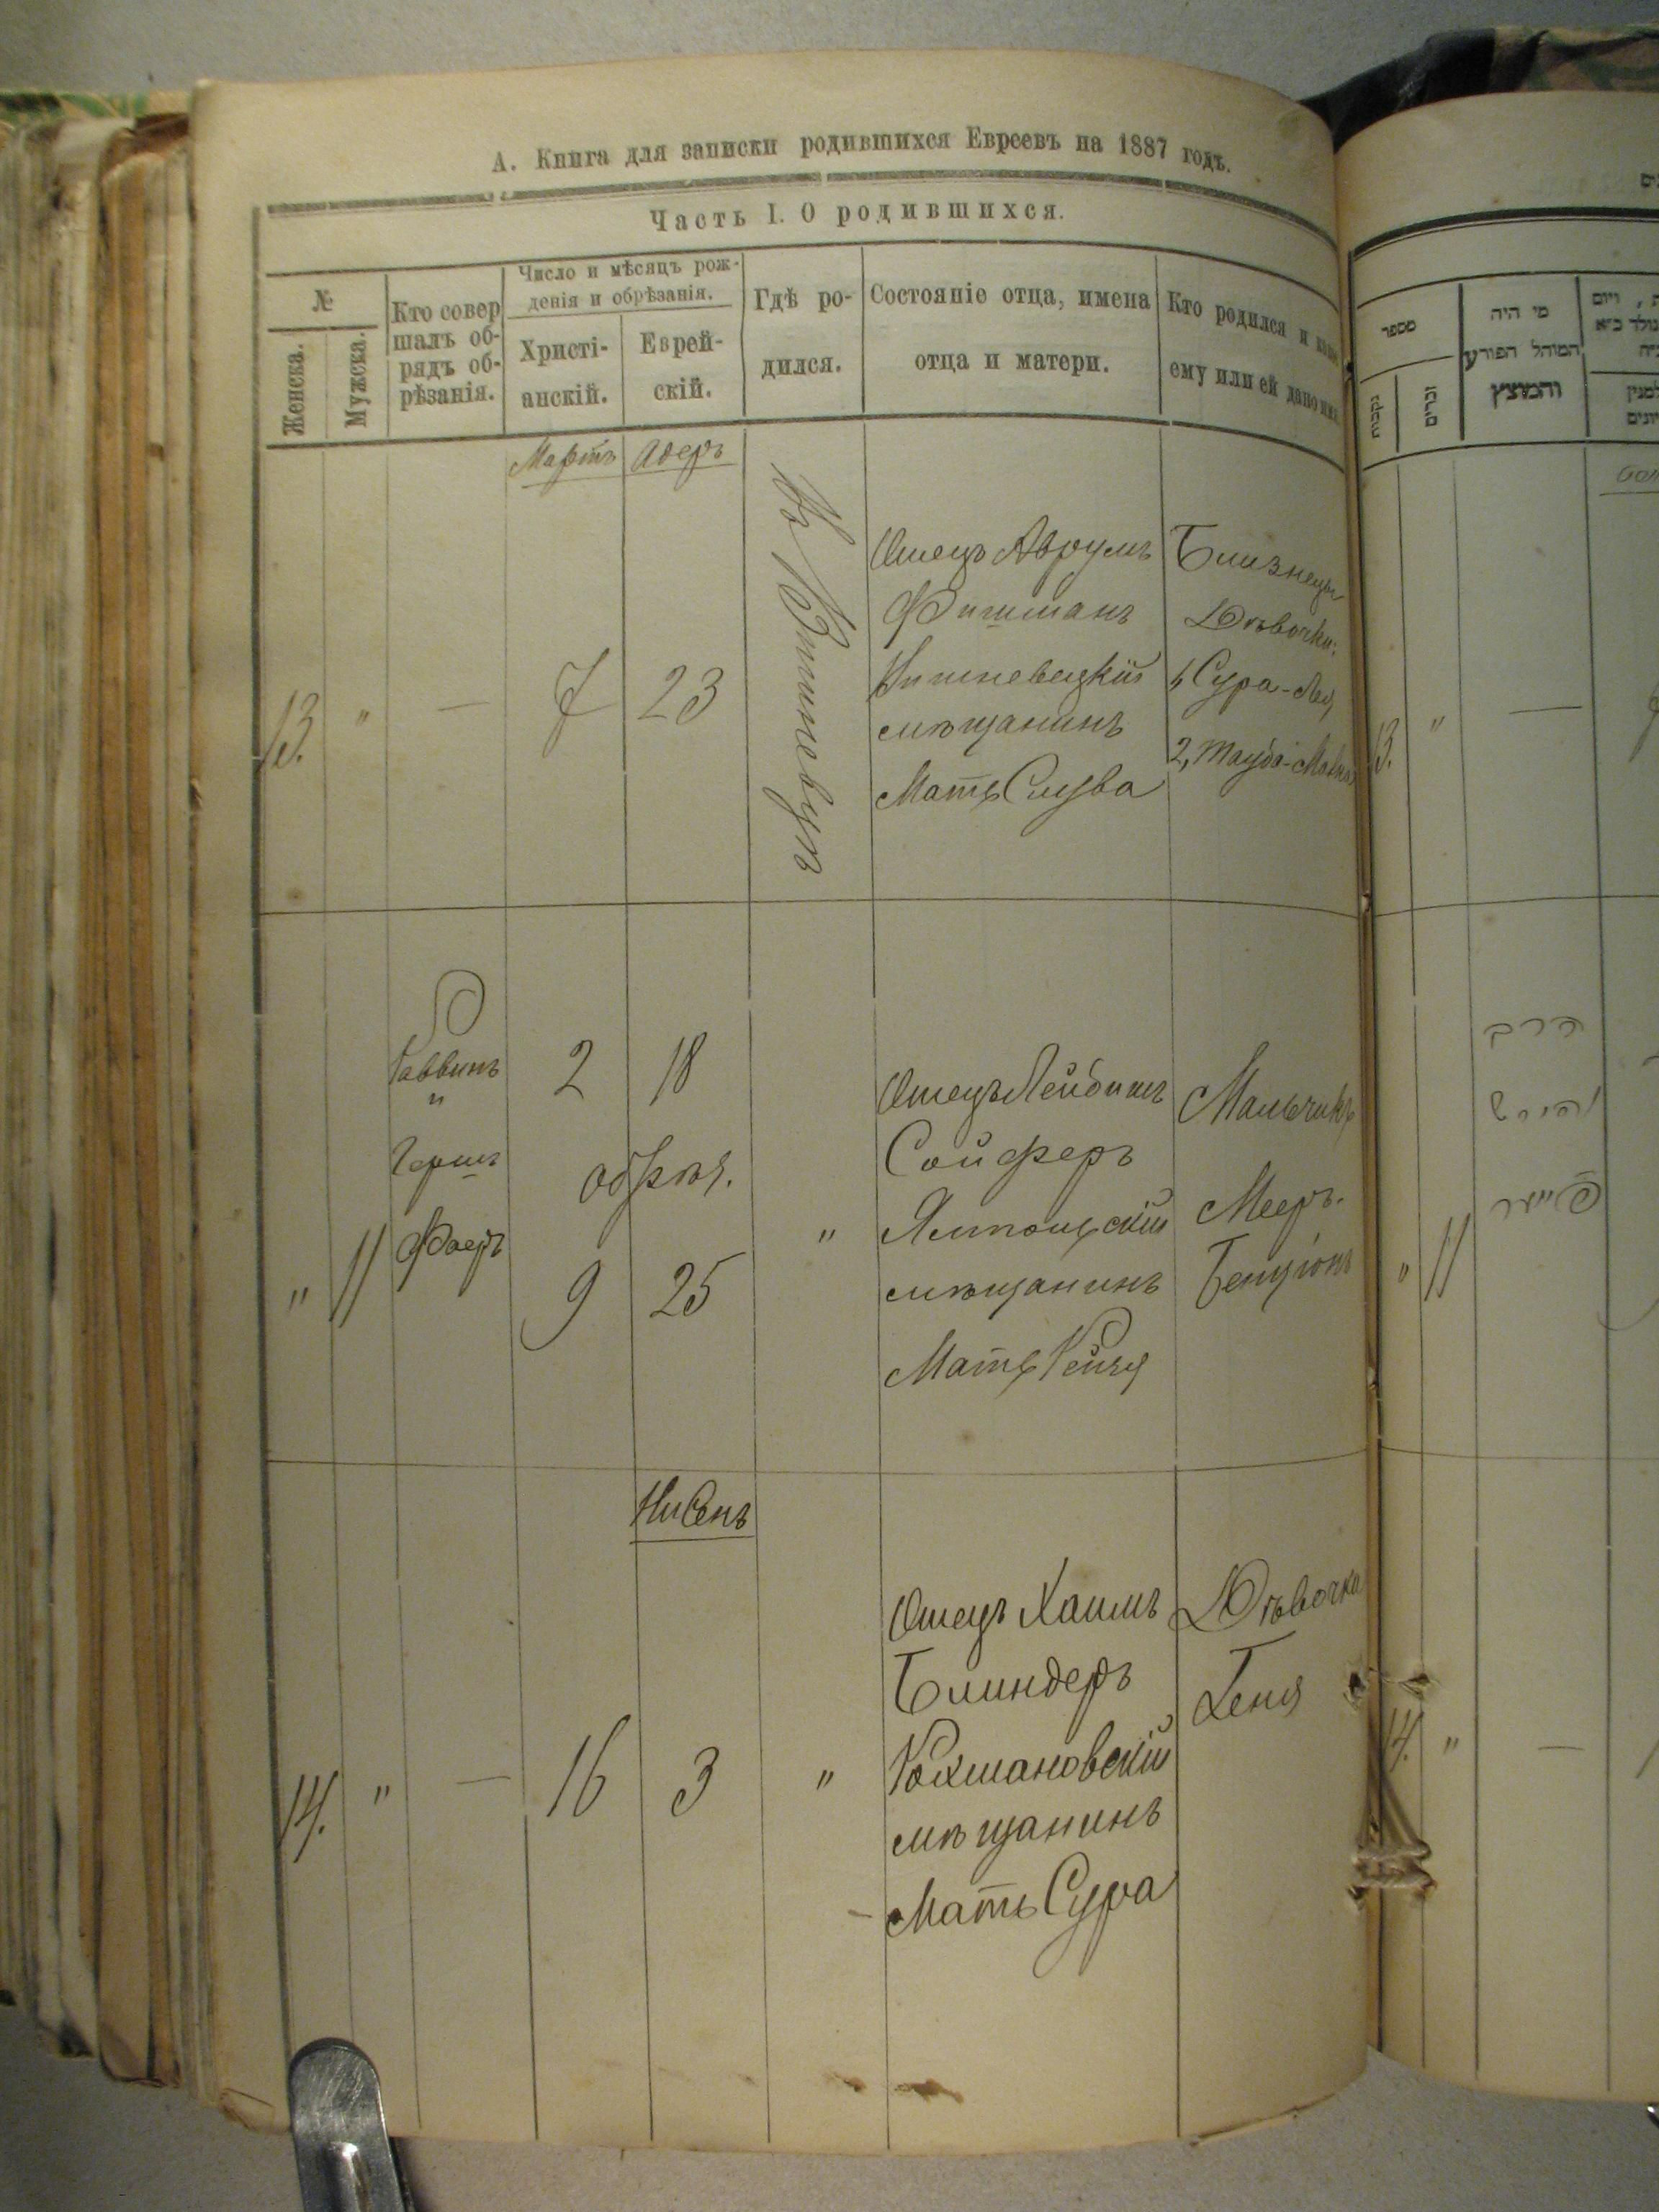 А. Книга для записки родившихся Евреевъ на 1887 годъ.
Часть I. О родившихся.
№
Женска.
Мужска.
Кто совер
шалъ об-
рядъ об-
рѣзанія.
Число и мѣсяцъ рож-
денія и обрѣзанія.
Христі-
анскій.
Еврей-
скій.
Гдѣ ро-
дился.
Состояніе отца, имена
отца и матери.
Кто родился и
ему или ей дано
Мартъ
Адеръ
13.
"
—
7
23
Въ Вишневцѣ
Отецъ Аврумъ
Фишманъ
Вишневецкій
мѣщанинъ
Мать Слува
Близнецы
Дѣвочки:
1, Сура-Лея
2, Тауба-Малка
"
11
Раввинъ
и
Гершъ
Фаеръ
2
18
обрѣз.
9
25
"
Отецъ Лейбишъ
Сойферъ
Ямпольскій
мѣщанинъ
Мать Рейзя
Мальчикъ
Мееръ-
Бенціонъ
Нисенъ
14.
"
—
16
3
"
Отецъ Хаимъ
Блиндеръ
Кохмановскій
мѣщанинъ
Мать Сура
Дѣвочка
Геня
מספר
נקבות
זכרים
מי היה
המוהל הפורע
והמוצץ
13.
"
—
"
11
הרב
והירש
פייער
14.
"
—